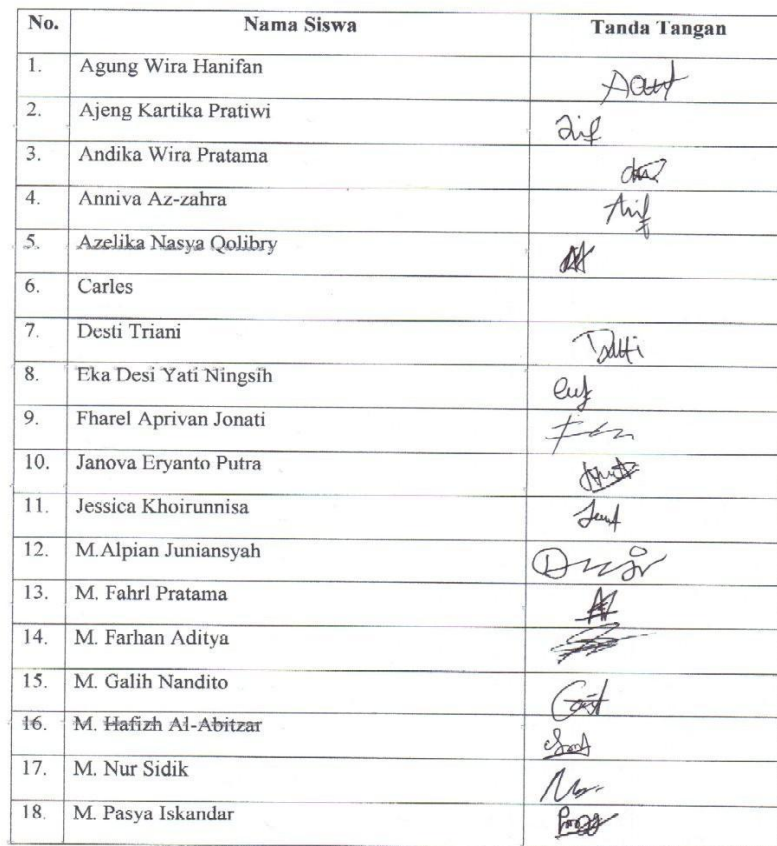 No. Nama Siswa Tanda Tangan
1. Agung Wira Hanifan
2. Ajeng Kartika Pratiwi
3. Andika Wira Pratama
4. Anniva Az-zahra
5. Azelika Nasya Qolibry
6. Carles
7. Desti Triani
8. Eka Desi Yati Ningsih
9. Fharel Aprivan Jonati
10. Janova Eryanto Putra
11. Jessica Khoirunnisa
12. M.Alpian Juniansyah
13. M. Fahrl Pratama
14. M. Farhan Aditya
15. M. Galih Nandito
16. M. Hafizh Al-Abitzar
17. M. Nur Sidik
18. M. Pasya Iskandar